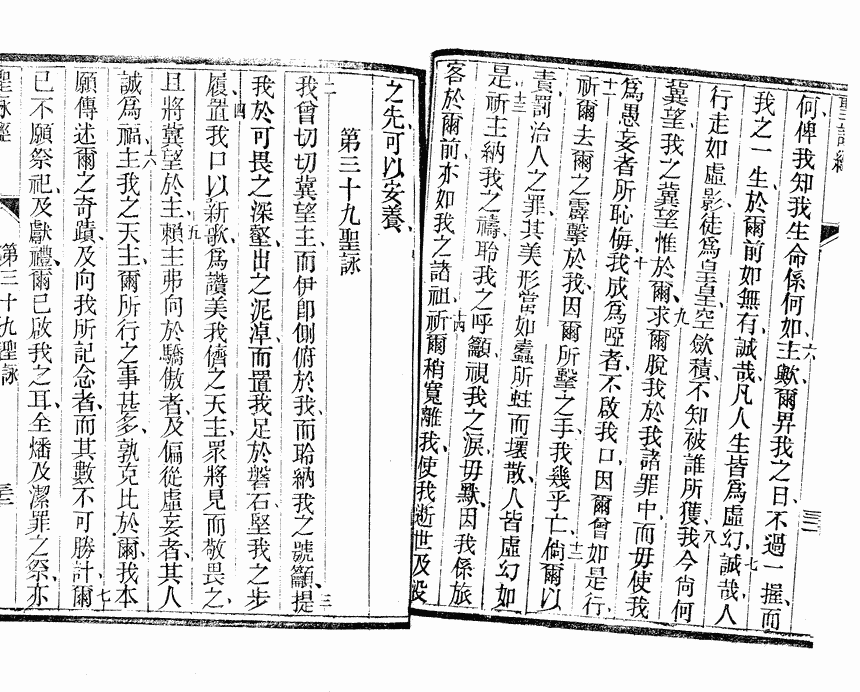 聖詠經
三二
何俾我知我生命係何如六主歟爾畀我之日不過一握而
我之一生於爾前如無有誠哉凡人生皆爲虛幻七誠哉人
行走如虛影徒爲皇皇空斂積不知被誰所獲八我今尚何
冀望我之冀望惟於爾九求爾脫我於我諸罪中而毋使我
爲愚妄者所恥侮十我成爲啞者不啟我口因爾曾如是行
十一祈爾去爾之霹擊於我因爾所擊之手我幾乎亡十二倘爾以
責罰治人之罪其美形當如蠹所蛀而壞散人皆虛幻如
是十三祈主納我之禱聆我之呼籲視我之淚毋默因我係旅
客於爾前亦如我之諸祖十四祈爾稍寬離我使我逝世及没
之先可以安養
第三十九聖詠
二我曾切切冀望主而伊卽側俯於我而聆納我之號籲三提
我於可畏之深壑出之泥淖而置我足於磐石堅我之步
履四置我口以新歌爲讚美我儕之天主眾將見而敬畏之
且將冀望於主五賴主弗向於驕傲者及偏從虛妄者其人
誠爲福六主我之天主爾所行之事甚多孰克比於爾我本
願傳述爾之奇蹟及向我所記念者而其數不可勝計七爾
已不願祭祀及獻禮爾已啟我之耳全燔及潔罪之祭亦
聖詠經
第三十九聖詠
三三